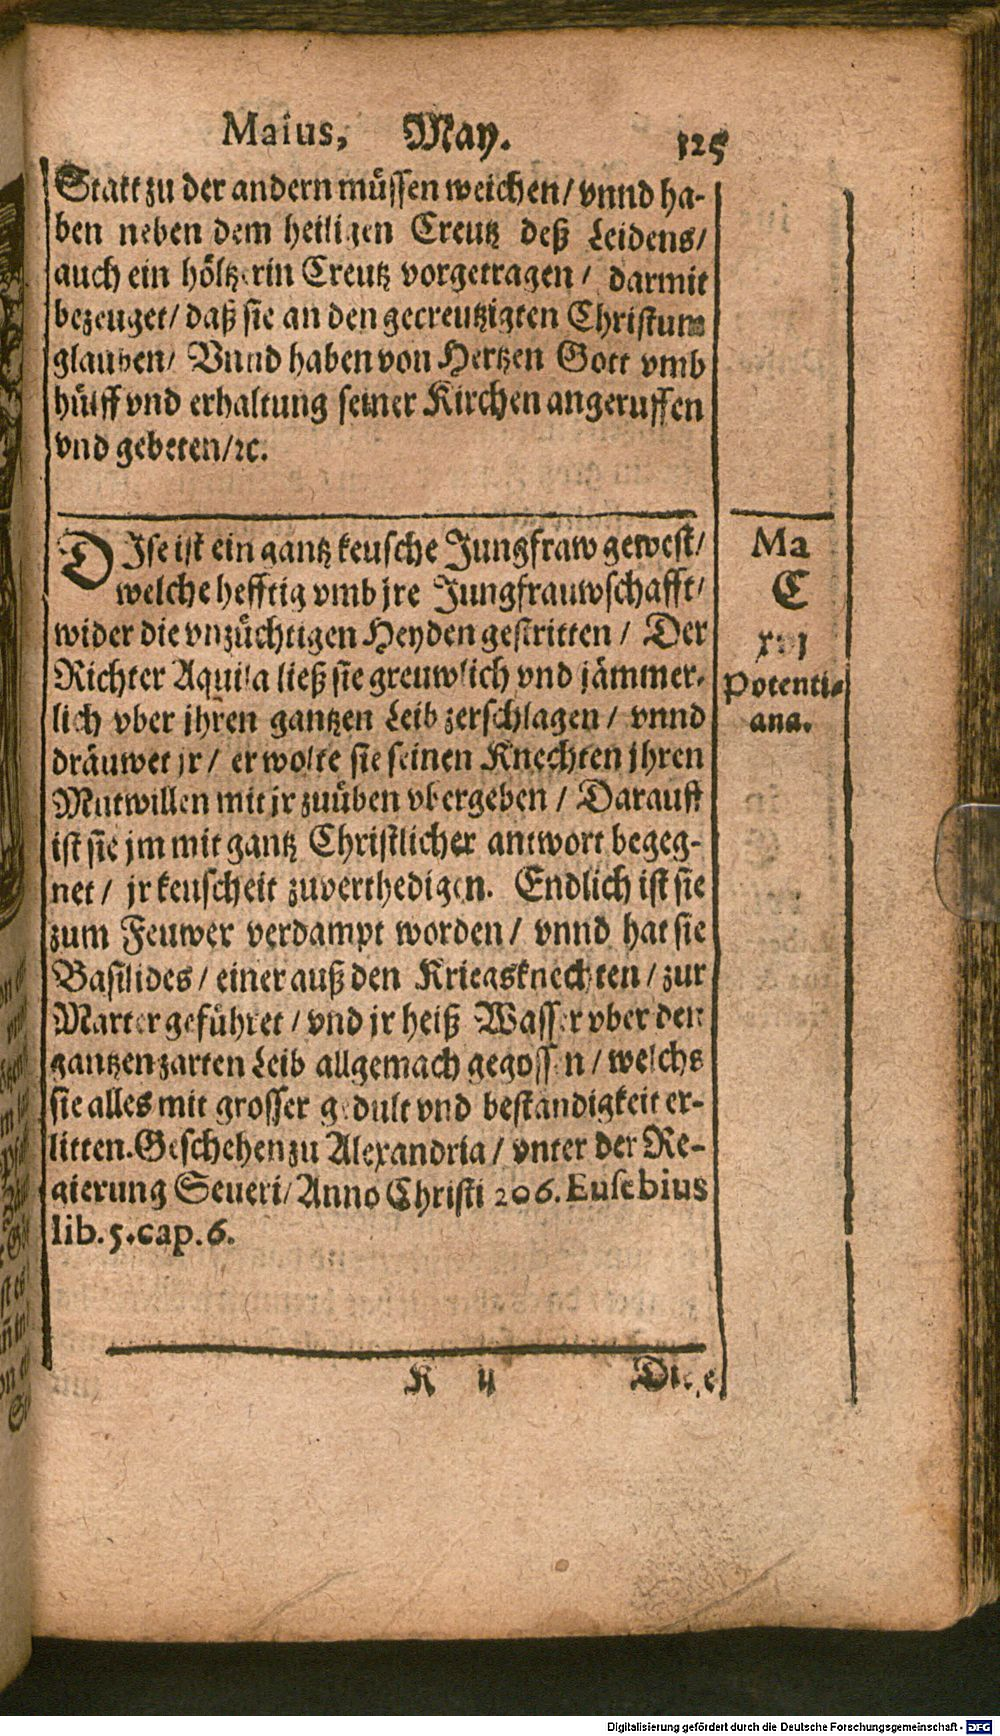 Maius, May. 125
Statt zu der andern müssen weichen / vnnd ha-
ben neben dem heiligen Creutz deß Leidens /
auch ein höltzerin Creutz vorgetragen / darmit
bezeuget / daß sie an den gecreutzigten Christum
glauben / Vnnd haben von Hertzen Gott vmb
hülff vnd erhaltung seiner Kirchen angeruffen
vnd gebeten / ꝛc.
DJse ist ein gantz keusche Jungfraw gewest /
welche hefftig vmb jre Jungfrauwschafft /
wider die vnzüchtigen Heyden gestritten / Der
Richter Aquila ließ sie greuwlich vnd jämmer-
lich vber jhren gantzen Leib zerschlagen / vnnd
dräuwet jr / er wolte sie seinen Knechten jhren
Mutwillen mit jr zuüben vbergeben / Darauff
ist sie jm mit gantz Christlicher antwort begeg-
net / jr keuscheit zuverthedigen. Endlich ist sie
zum Feuwer verdampt worden / vnnd hat sie
Basilides / einer auß den Kriegsknechten / zur
Marter geführet / vnd jr heiß Wasser vber den
gantzen zarten Leib allgemach gegossen / welchs
sie alles mit grosser gedult vnd beständigkeit er-
litten. Geschehen zu Alexandria / vnter der Re-
gierung Seueri / Anno Christi 206. Eusebius
lib. 5. cap. 6.
Ma
C
xvj
Potenti-
ana.
K ij Diese
Digitalisierung gefördert durch die Deutsche Forschungsgemeinschaft - DFG